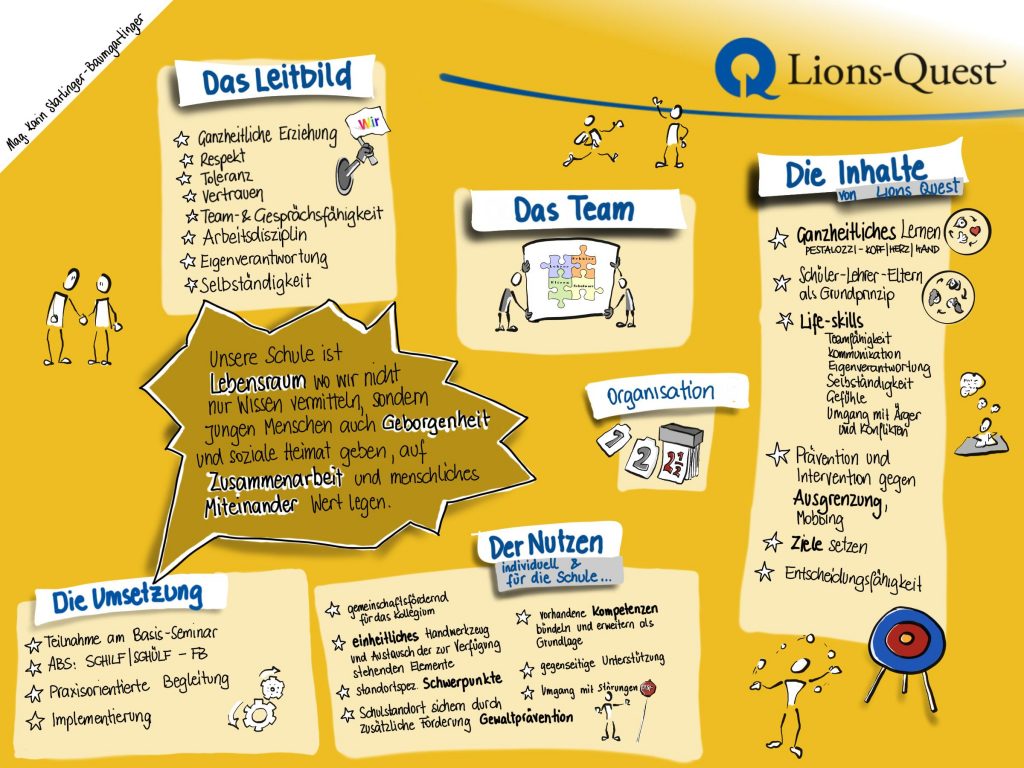 Mag. Karin Starlinger-Baumgartinger
Das Leitbild
Ganzheitliche Erziehung
Respekt
Toleranz
Vertrauen
Team- & Gesprächsfähigkeit
Arbeitsdisziplin
Eigenverantwortung
Selbständigkeit
Wir
Lions-Quest
Das Team
Schüler
Lehrer
Eltern
Schulwart
Die Inhalte
von Lions Quest
Ganzheitliches Lernen
PESTALOZZI - KOPF/HERZ/HAND
Schüler-Lehrer-Eltern
als Grundprinzip
Life-skills
Teamfähigkeit
Kommunikation
Eigenverantwortung
Selbständigkeit
Gefühle
Umgang mit Ärger
und Konflikten
Prävention und
Intervention gegen
Ausgrenzung,
Mobbing
Ziele setzen
Entscheidungsfähigkeit
Unsere Schule ist
Lebensraum wo wir nicht
nur Wissen vermitteln, sondern
jungen Menschen auch Geborgenheit
und soziale Heimat geben, auf
Zusammenarbeit und menschliches
Miteinander Wert legen.
Organisation
1
2
2 1/2
Die Umsetzung
Teilnahme am Basis-Seminar
ABS: SCHILF/SCHÜLF - FB
Praxisorientierte Begleitung
Implementierung
Der Nutzen
individuell &
für die Schule...
gemeinschaftsfördernd
für das Kollegium
einheitliches Handwerkzeug
und Austausch der zur Verfügung
stehenden Elemente
standortspez. Schwerpunkte
Schulstandort sichern durch
zusätzliche Förderung Gewaltprävention
vorhandene Kompetenzen
bündeln und erweitern als
Grundlage
gegenseitige Unterstützung
Umgang mit Störungen